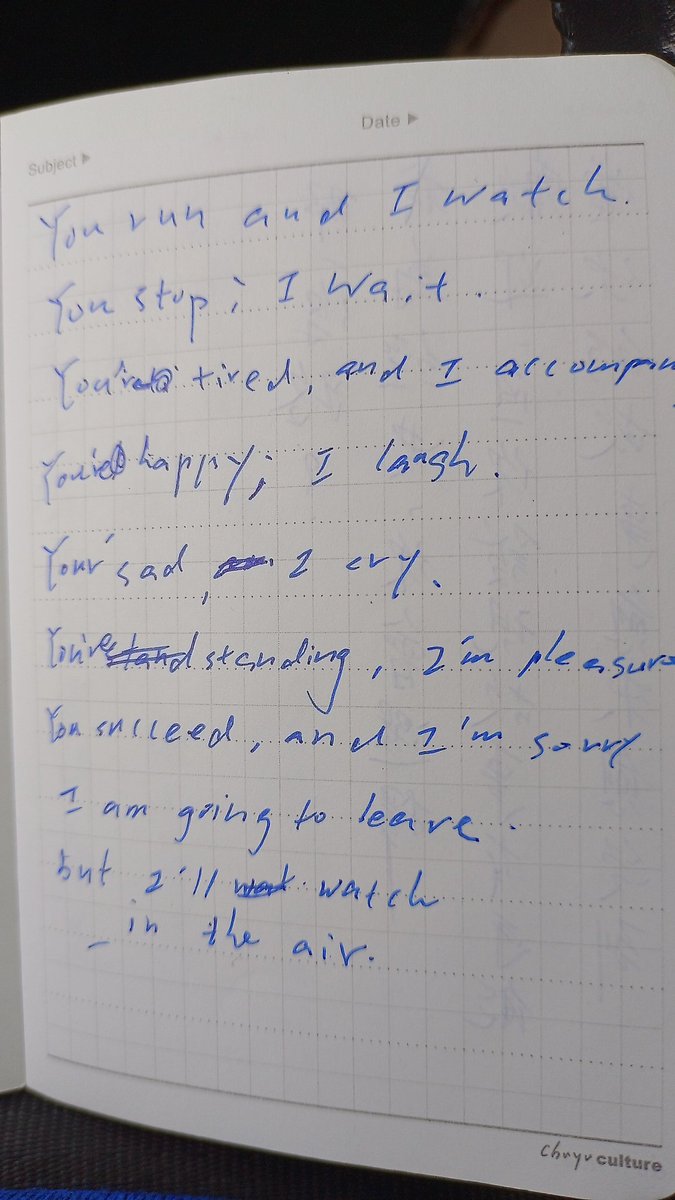 Subject
Date
You run and I watch.
You stop; I wait.
You're tired, and I accompan
You're happy; I laugh.
Your' sad, I cry.
You're standing, I'm pleasure
You succeed, and I'm sorry
I am going to leave.
but I'll watch
in the air.
culture